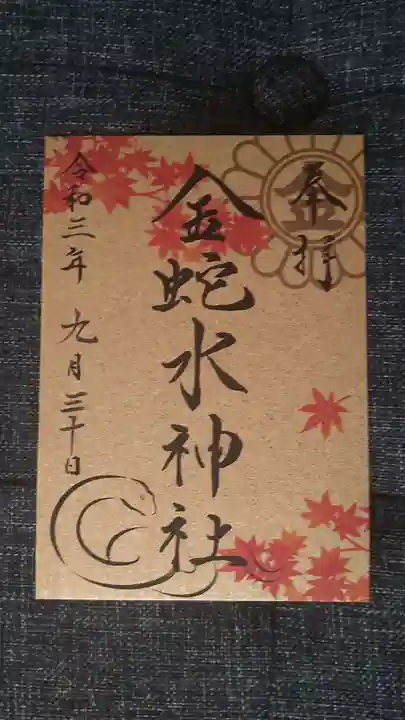 奉拝
金
金蛇水神社
令和三年九月三十日